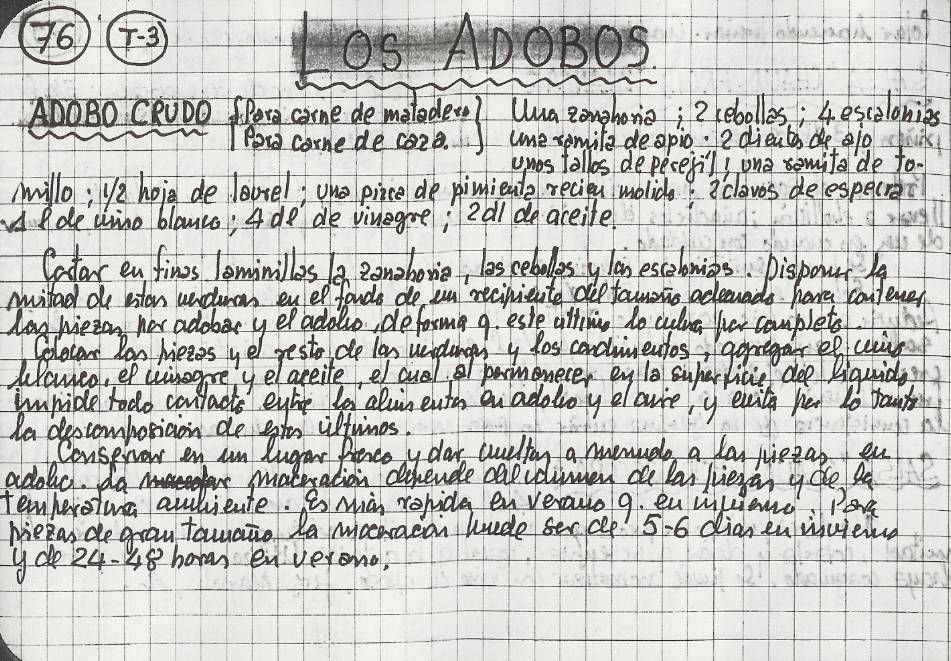 76 T-3 LOS ADOBOS
ADOBO CRUDO {Para carne de matadero} Una zanahoria ; 2 cebollas ; 4 escalonias
{Para carne de caza.} una ramita de apio . 2 dientes de ajo
unos tallos de perejil ; una ramita de to-
millo ; 1/2 hoja de laurel ; una pizca de pimienta recien molida ; 2 clavos de especia
1 l de vino blanco ; 4 dl de vinagre ; 2 dl de aceite.
Cortar en finas laminillas la zanahoria, las cebollas y las escalonias. Disponer la
mitad de estas verduras en el fondo de un recipiente del tamaño adecuado para contener
las piezas por adobar y el adobo, de forma q. este ultimo lo cubra por completo.
Colocar las piezas y el resto de las verduras y los condimentos, agregar el vino
blanco, el vinagre y el aceite, el cual al permanecer en la superficie del liquido
impide todo contacto entre los alimentos en adobo y el aire, y evita por lo tanto
la descomposicion de estos últimos.
Conservar en un lugar fresco y dar vueltas a menudo a las piezas en
adobo. La maceración depende del volumen de las piezas y de la
temperatura ambiente. Es más rapida en verano q. en invierno. Para
piezas de gran tamaño la maceración puede ser de 5-6 dias en invierno
y de 24-48 horas en verano.